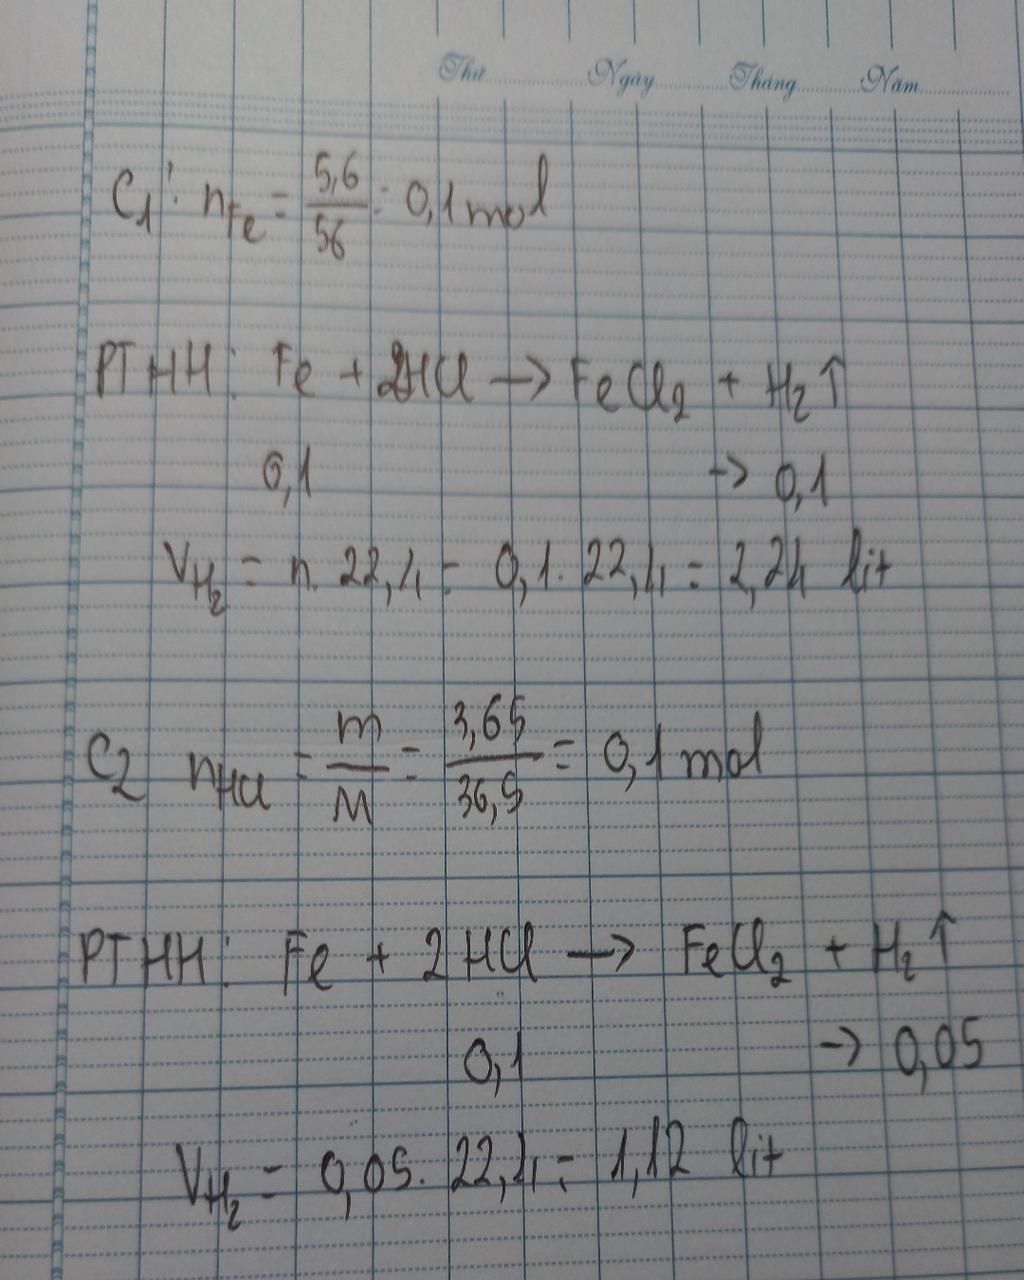 Thứ Ngày Tháng Năm
C1: nFe = 5,6/56 = 0,1 mol
PTHH: Fe + 2HCl → FeCl2 + H2↑
0,1 → 0,1
VH2 = n. 22,4 = 0,1. 22,4 = 2,24 lit
C2 nHCl = m/M = 3,65/36,5 = 0,1 mol
PTHH: Fe + 2HCl → FeCl2 + H2↑
0,1 → 0,05
VH2 = 0,05. 22,4 = 1,12 lit